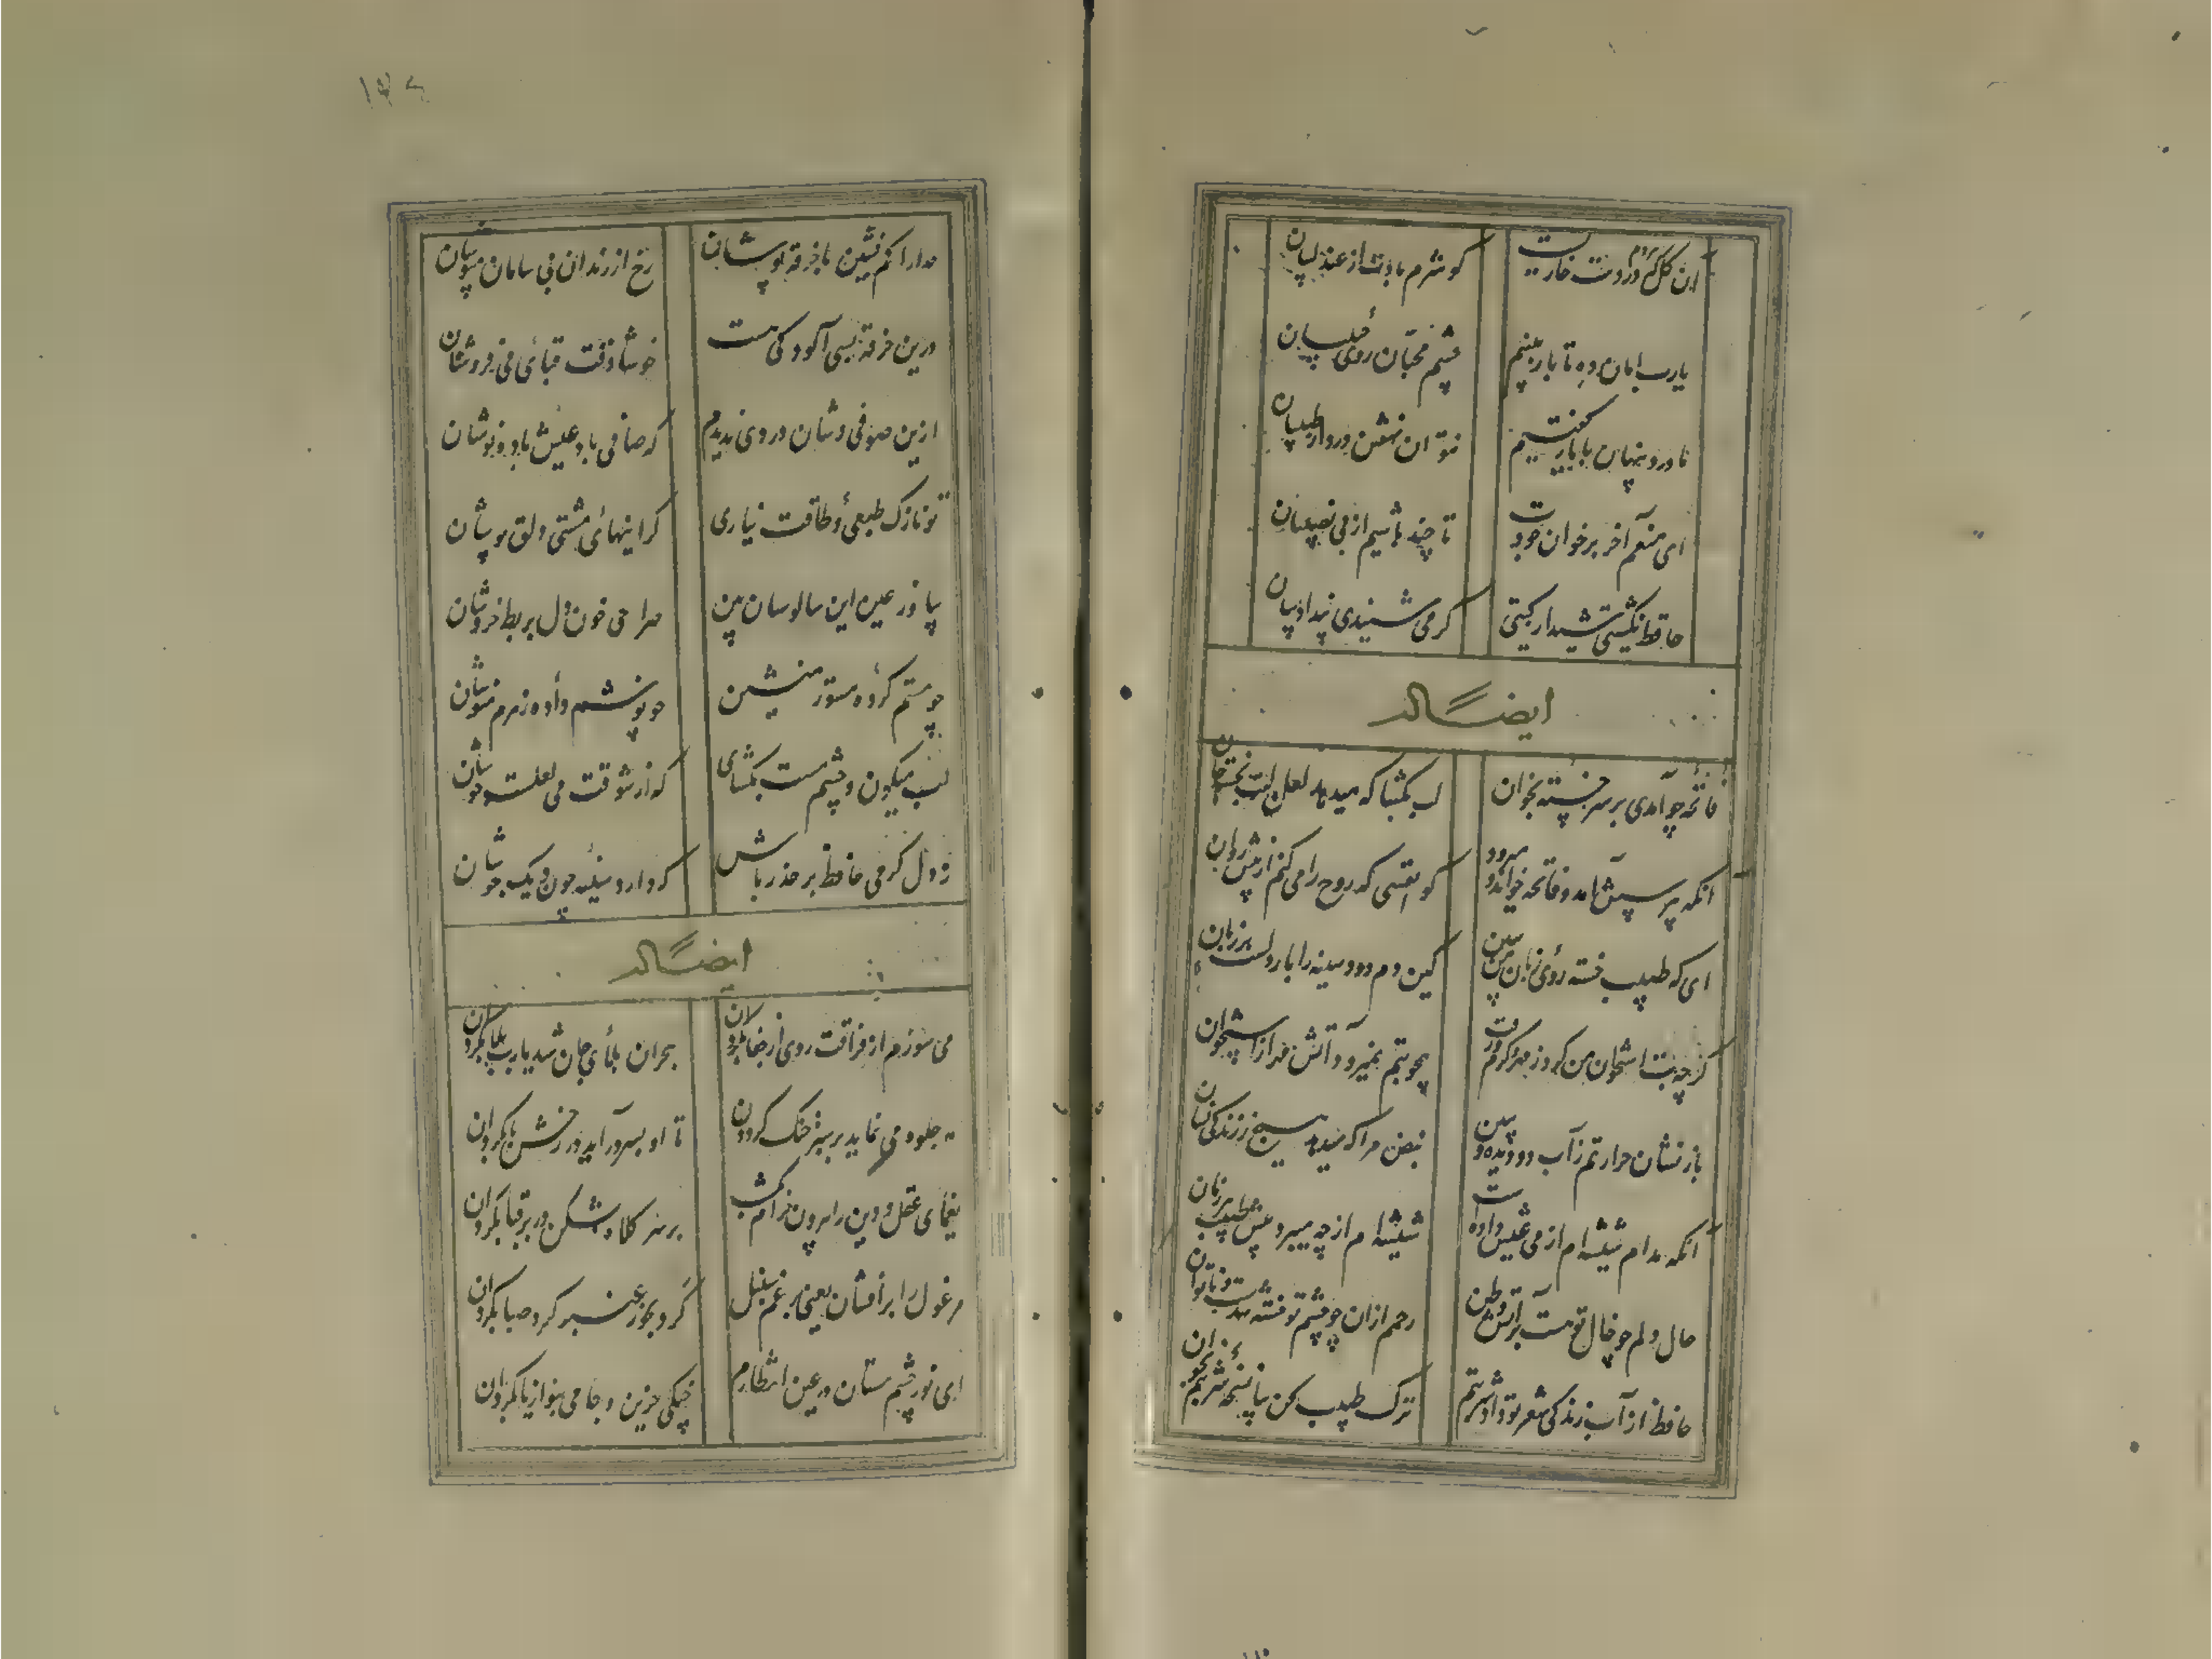 ان گل که هر دم در دست خاریست
گو شرم بادت از عندلیبان
یارب امان ده تا باز بینم
چشم محبان روی حبیبان
ما درد پنهان با یار گفتیم
نتوان نهفتن درد از طبیبان
ای منعم آخر بر خوان جودت
تا چند باشیم از بی نصیبان
حافظ نگشتی شیدای گیتی
گر می شنیدی پند ادیبان
ایضاً له
فاتحه چو آمدی بر سر خسته بخوان
لب بگشا که میدهد لعل لبت بخسته جان
انکه بپرسش امد و فاتحه خواند و میرود
کو نفسی که روح را می کنم از پیش روان
ای که طبیب خسته روی زبان من ببین
کین دم و دود سینه را بار دلست بر زبان
گرچه تب استخوان من کرد ز مهر گرم و رفت
همچو تبم نمیرود آتش مهر از استخوان
باز نشان حرارتم ز آب دو دیده و ببین
نبض مرا که میدهد هیچ ز زندگی نشان
انکه مدام شیشه ام از می عیش داده است
شیشه ام از چه میبرد پیش طبیب هر زمان
حال دلم چو خال تو هست بر آتش وطن
جسمم ازان چو چشم تو خسته شدست و ناتوان
حافظ از آب زندگی شعر تو داد شربتم
ترک طبیب کن بیا نسخه شربتم بخوان
۱۳۶
مدارا کم نشین با خرقه پوشان
رخ از رندان بی سامان مپوشان
درین خرقه بسی آلودگی هست
خوشا وقت قبای می فروشان
ازین صوفی وشان دردی ندیدم
که صافی باد عیش باده نوشان
تو نازک طبعی و طاقت نیاری
گرانیهای مشتی دلق پوشان
بیا وز غبن این سالوسان ببین
صراحی خون دل بربط خروشان
چو مستم کرده مستور منشین
چو نوشم داده زهرم منوشان
لب میگون و چشم مست بگشای
که از شوقت می لعلست جوشان
ز دل گرمی حافظ بر حذر باش
که دارد سینه چون دیک جوشان
ایضاً له
می سوزم از فراقت روی از جفا بگردان
هجران بلای جان شد یارب بلا بگردان
مه جلوه می نماید بر سبز خنک گردون
تا او بسر درآید در رخش پا بگردان
یغمای عقل و دین را بیرون خرام سرمست
بر سر کلاه بشکن در بر قبا بگردان
مرغول را برافشان یعنی برغم سنبل
گرد بخور عنبر گرد صبا بگردان
ای نور چشم مستان در عین انتظارم
چنگی حزین و جامی بنواز یا بگردان